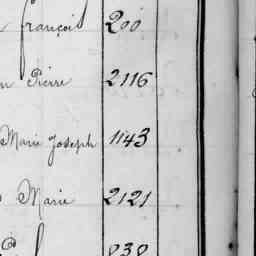 françois 200
n Pierre 2116
Marie Joseph 1143
Marie 2121
838